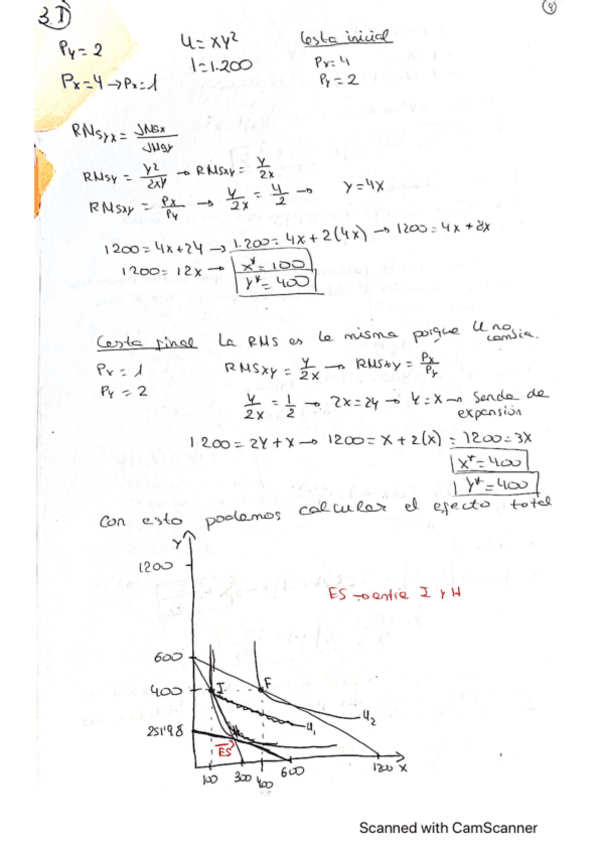 3D
④
Py=2   U=XY²   Cesta inicial
Px=4→Px=1   I=1.200   Px=4
Py=2
RMSyx = UMgx / UMgy
RMSy = Y²/2XY → RMSxy = Y/2X
RMSxy = Px/Py → Y/2X = 4/2 → Y=4X
1200=4X+2Y → 1.200=4X+2(4X) → 1200=4X+8X
1200=12X → X*=100
Y*=400
Cesta final La RMS es la misma porque U no cambia.
Px=1   RMSxy = Y/2X → RMSxy = Px/Py
Py=2
Y/2X = 1/2 → 2X=2Y → Y=X → Senda de expansión
1200=2Y+X → 1200=X+2(X) = 1200=3X
X*=400
Y*=400
Con esto podemos calcular el efecto total
Y
1200
ES → entre I y H
600
400 I F
U2
U1
251'98
H
ES
100 300 400 600 1200 X
Scanned with CamScanner